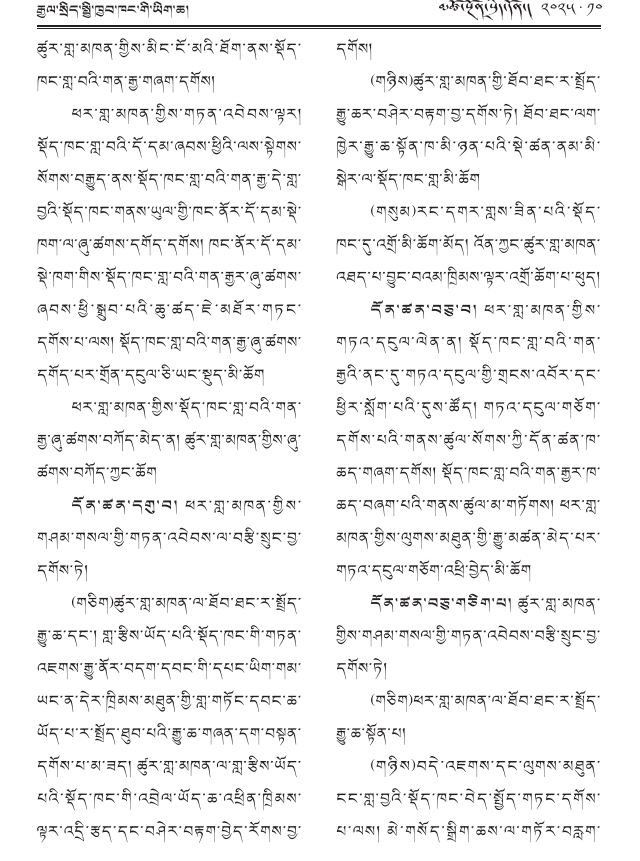 རྒྱལ་སྲིད་སྤྱི་ཁྱབ་ཁང་གི་ཡིག་ཆ།
༢༠༢༥ · ༡༠
ཚུར་གླ་མཁན་གྱིས་མིང་ངོ་མའི་ཐོག་ནས་སྡོད་
ཁང་གླ་བའི་གན་རྒྱ་གཞག་དགོས།
ཕར་གླ་མཁན་གྱིས་གཏན་འབེབས་ལྟར།
སྡོད་ཁང་གླ་བའི་དོ་དམ་ཞབས་ཕྱིའི་ལས་སྟེགས་
སོགས་བརྒྱུད་ནས་སྡོད་ཁང་གླ་བའི་གན་རྒྱ་དེ་གླ་
བྱའི་སྡོད་ཁང་གནས་ཡུལ་གྱི་ཁང་ནོར་དོ་དམ་སྡེ་
ཁག་ལ་ཞུ་ཚགས་དགོད་དགོས། ཁང་ནོར་དོ་དམ་
སྡེ་ཁག་གིས་སྡོད་ཁང་གླ་བའི་གན་རྒྱར་ཞུ་ཚགས་
ཞབས་ཕྱི་སྒྲུབ་པའི་ཆུ་ཚད་ཇེ་མཐོར་གཏང་
དགོས་པ་ལས། སྡོད་ཁང་གླ་བའི་གན་རྒྱ་ཞུ་ཚགས་
དགོད་པར་གྲོན་དངུལ་ཅི་ཡང་སྡུད་མི་ཆོག
ཕར་གླ་མཁན་གྱིས་སྡོད་ཁང་གླ་བའི་གན་
རྒྱ་ཞུ་ཚགས་བཀོད་མེད་ན། ཚུར་གླ་མཁན་གྱིས་ཞུ་
ཚགས་བཀོད་ཀྱང་ཆོག
དོན་ཚན་དགུ་བ། ཕར་གླ་མཁན་གྱིས་
གཤམ་གསལ་གྱི་གཏན་འབེབས་ལ་བརྩི་སྲུང་བྱ་
དགོས་ཏེ།
(གཅིག)ཚུར་གླ་མཁན་ལ་ཐོབ་ཐང་ར་སྤྲོད་
རྒྱུ་ཆ་དང་། གླ་རྩིས་ཡོད་པའི་སྡོད་ཁང་གི་གཏན་
འཇགས་རྒྱུ་ནོར་བདག་དབང་གི་དཔང་ཡིག་གམ་
ཡང་ན་དེར་ཁྲིམས་མཐུན་གྱི་གླ་གཏོང་དབང་ཆ་
ཡོད་པ་ར་སྤྲོད་ཐུབ་པའི་རྒྱུ་ཆ་གཞན་དག་བསྟན་
དགོས་པ་མ་ཟད། ཚུར་གླ་མཁན་ལ་གླ་རྩིས་ཡོད་
པའི་སྡོད་ཁང་གི་འབྲེལ་ཡོད་ཆ་འཕྲིན་ཁྲིམས་
ལྟར་འདྲི་རྩད་དང་བཤེར་བརྟག་བྱེད་རོགས་བྱ་
དགོས།
(གཉིས)ཚུར་གླ་མཁན་གྱི་ཐོབ་ཐང་ར་སྤྲོད་
རྒྱུ་ཆར་བཤེར་བརྟག་བྱ་དགོས་ཏེ། ཐོབ་ཐང་ལག་
ཁྱེར་རྒྱུ་ཆ་སྟོན་ཁ་མི་ཉན་པའི་སྡེ་ཚན་ནམ་མི་
སྒེར་ལ་སྡོད་ཁང་གླ་མི་ཆོག
(གསུམ)རང་དགར་གླས་ཟིན་པའི་སྡོད་
ཁང་དུ་འགྲོ་མི་ཆོག་མོད། འོན་ཀྱང་ཚུར་གླ་མཁན་
འཐད་པ་བྱུང་བའམ་ཁྲིམས་ལྟར་འགྲོ་ཆོག་པ་ཕུད།
དོན་ཚན་བཅུ་བ། ཕར་གླ་མཁན་གྱིས་
གཏའ་དངུལ་ལེན་ན། སྡོད་ཁང་གླ་བའི་གན་
རྒྱའི་ནང་དུ་གཏའ་དངུལ་གྱི་གྲངས་འབོར་དང་
ཕྱིར་སློག་པའི་དུས་ཚོད། གཏའ་དངུལ་གཅོག་
དགོས་པའི་གནས་ཚུལ་སོགས་ཀྱི་དོན་ཚན་ཁ་
ཆད་གཞག་དགོས། སྡོད་ཁང་གླ་བའི་གན་རྒྱར་ཁ་
ཆད་བཞག་པའི་གནས་ཚུལ་མ་གཏོགས། ཕར་གླ་
མཁན་གྱིས་ལུགས་མཐུན་གྱི་རྒྱུ་མཚན་མེད་པར་
གཏའ་དངུལ་གཅོག་འཕྲི་བྱེད་མི་ཆོག
དོན་ཚན་བཅུ་གཅིག་པ། ཚུར་གླ་མཁན་
གྱིས་གཤམ་གསལ་གྱི་གཏན་འབེབས་བརྩི་སྲུང་བྱ་
དགོས་ཏེ།
(གཅིག)ཕར་གླ་མཁན་ལ་ཐོབ་ཐང་ར་སྤྲོད་
རྒྱུ་ཆ་སྟོན་པ།
(གཉིས)བདེ་འཇགས་དང་ལུགས་མཐུན་
ངང་གླ་བྱའི་སྡོད་ཁང་བེད་སྤྱོད་གཏང་དགོས་
པ་ལས། མེ་གསོད་སྒྲིག་ཆས་ལ་གཏོར་བརླག་